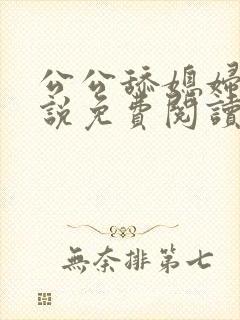 公公舔媳婦
說免費閱讀
無奈排第七